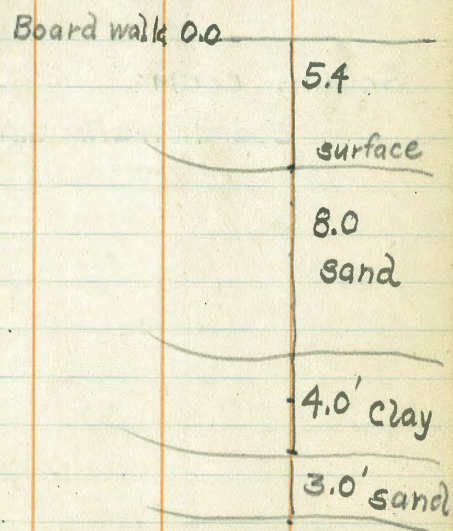 Board walk 0.0
5.4
surface
8.0
sand
4.0' Clay
3.0' sand